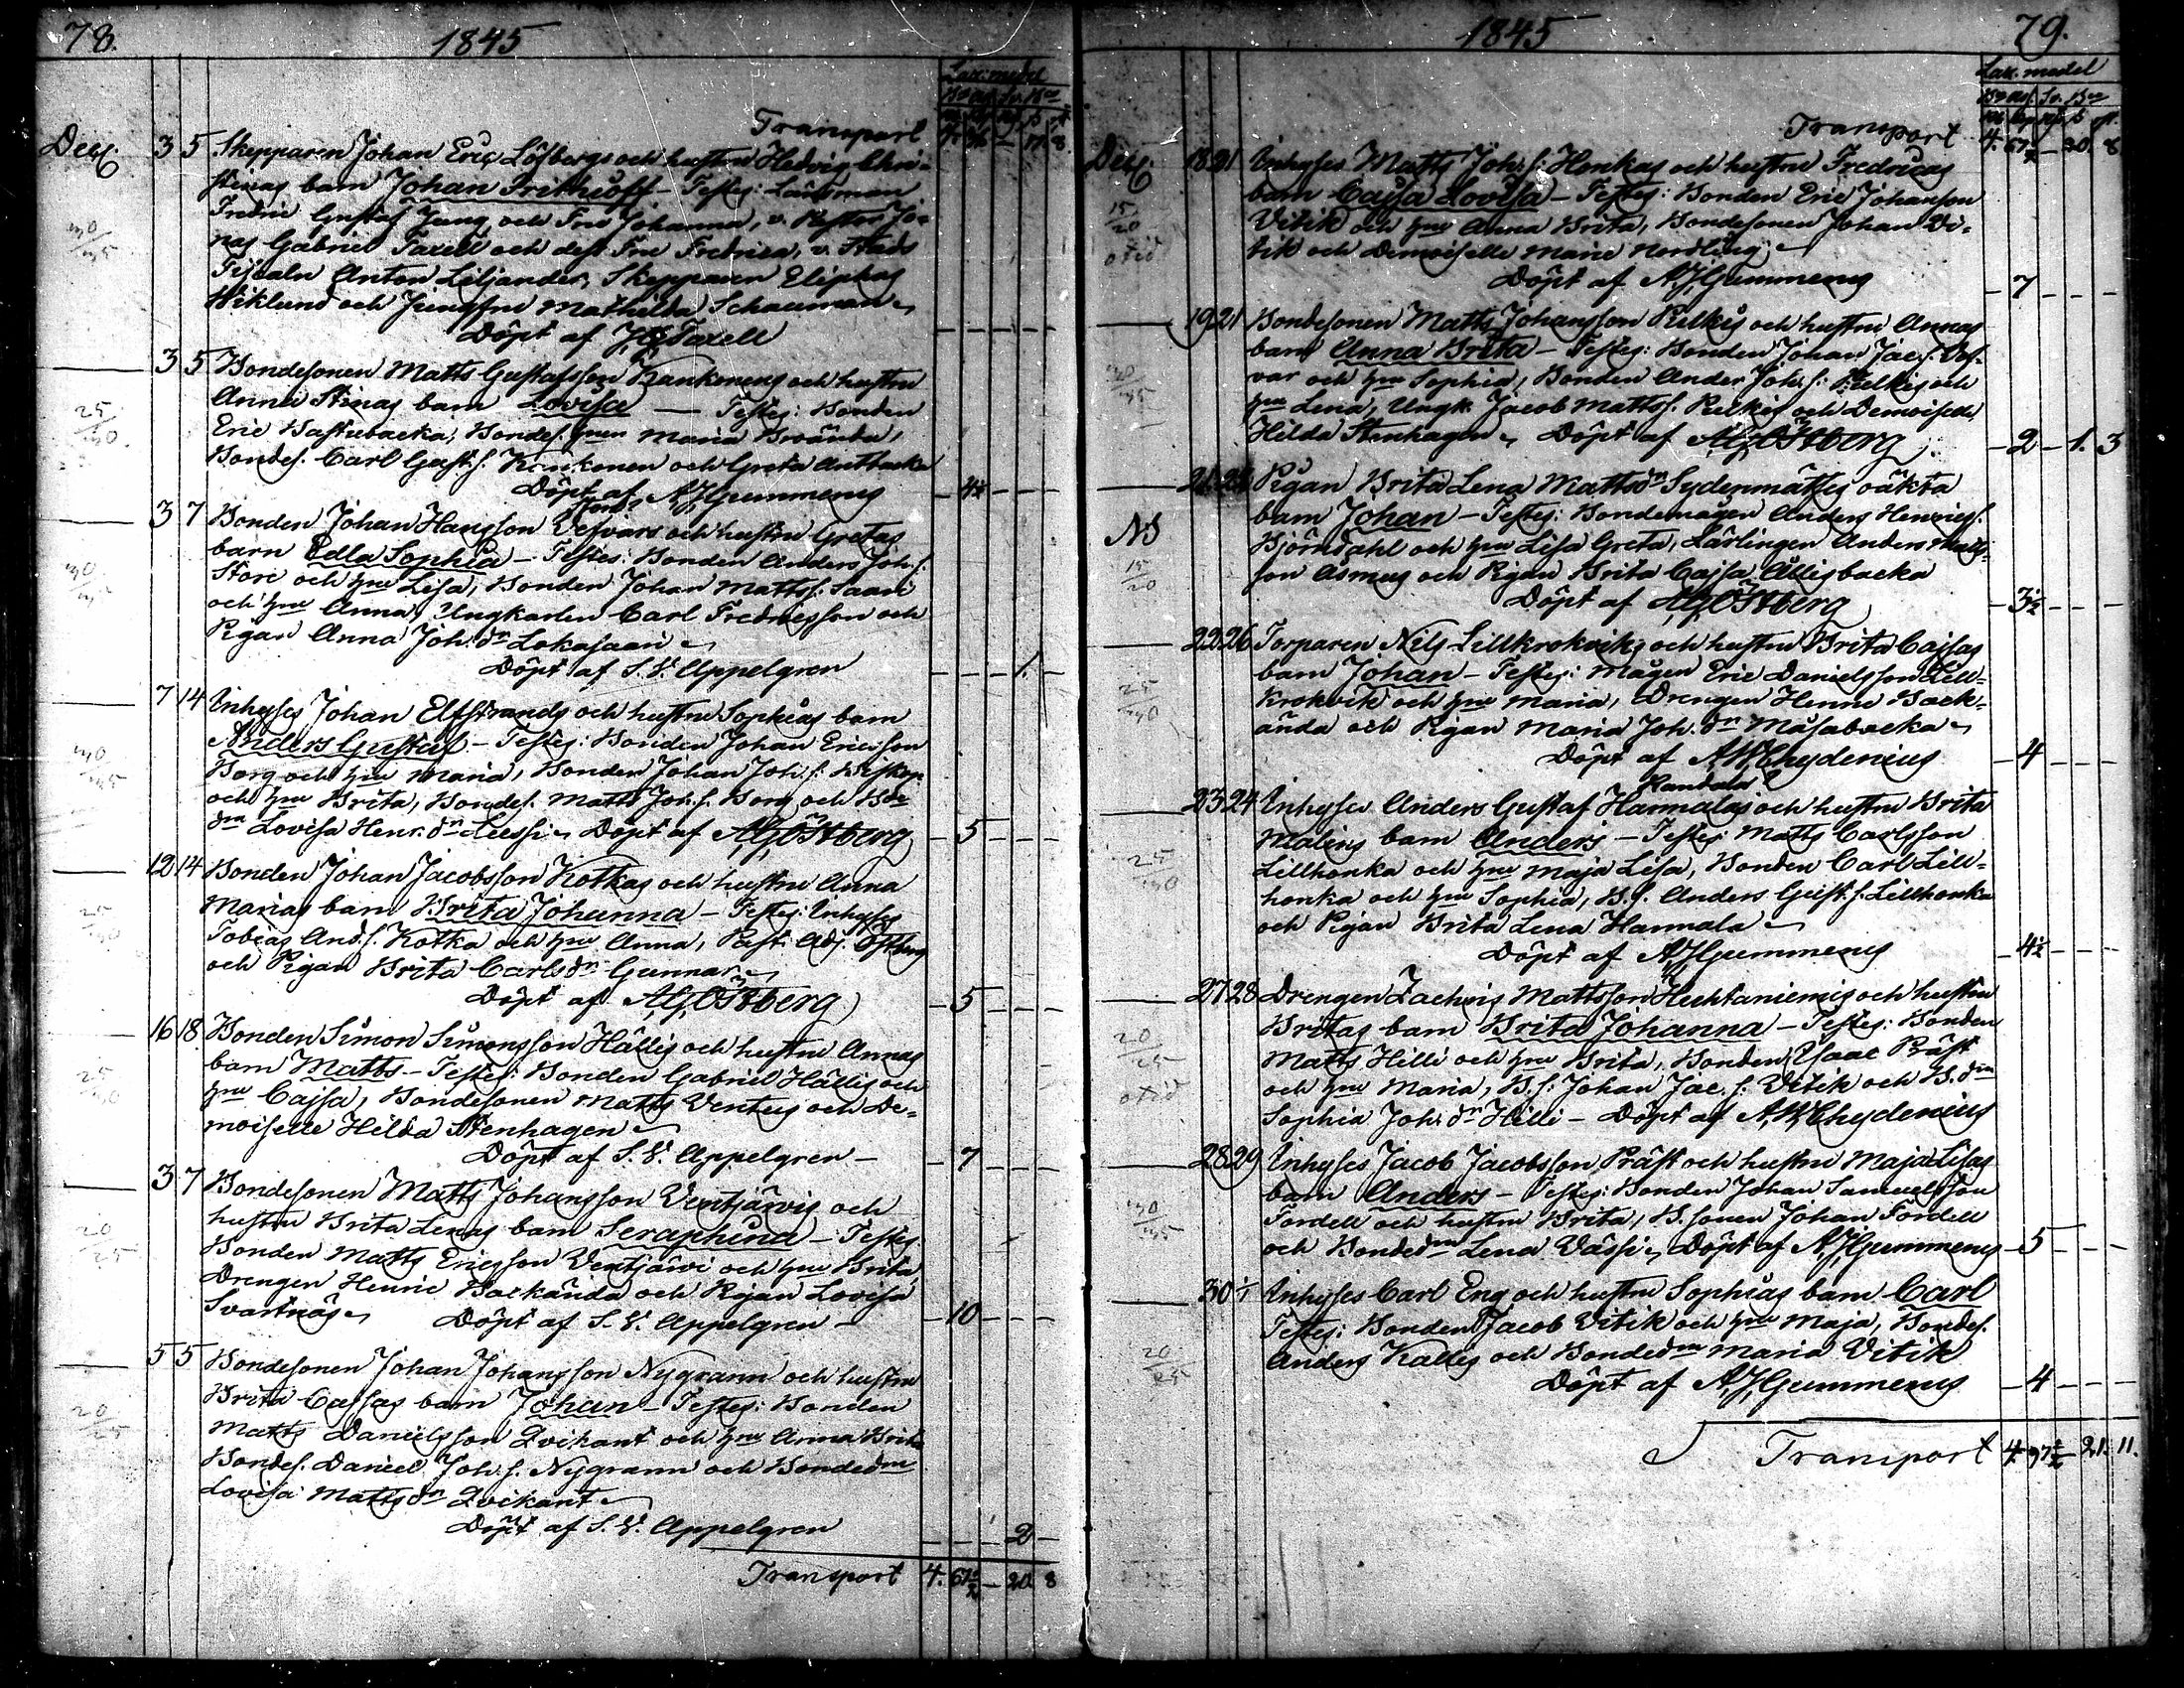 78.
1845
Lax. medel
Transport
Decb. 3 5 Skepparen Johan Eric Löfbergs och hustru Hedvig Chri-
stinas barn Johan Frithioff – Testes: Länsman
Fredric Gustaf Jung och Fru Johanna, v. Pastor Jo-
nas Gabriel Taxell och dess Fru Fredrica, v. Stads
Fiscaln Anton Liljander, Skepparen Eliphas
Wiklund och Jungfru Mathilda Schauman
Döpt af J.G. Taxell
30/35
3 5 Bondesonen Matts Gustafsson Kankonens och hustru
Anna Stinas barn Lovisa – Testes: Bonden
Eric Bastubacka, Bondes. hru Maria Brända,
Bondes. Carl Gust.s. Kankonen och Greta Antbacka
Döpt af A.J. Gummerus – 4½ – – –
25/30
3 7 Bonden Johan Hansson Vesvars och hustru Gretas
barn Edla Sophia – Testes: Bonden Anders Joh.s.
Store och hru Lisa, Bonden Johan Matts s. Saari
och hru Anna, Ungkarlen Carl Fredricsson och
Pigan Anna Joh.dr Lokasaari
Döpt af S.V. Appelgren – – – 1. –
30/35
7 14 Inhyses Johan Elfstrands och hustru Sophias barn
Anders Gustaf – Testes: Bonden Johan Ericsson
Borg och hru Maria, Bonden Johan Joh.s.
och hru Brita, Bondes. Matts Joh.s. Borg och Bde
dra Lovisa Henr.dr Leessi Döpt af A.G. Östberg – 5 – – –
30/35
12 14 Bonden Johan Jacobsson Kotkas och hustru Anna
Marias barn Brita Johanna – Testes: Inhyses
Tobias And.s. Kotka och hru Anna, Past. Adj. Östberg
och Pigan Brita Carlsdr Gunnar
Döpt af A.G. Östberg – 5 – – –
25/30
16 18 Bonden Simon Simonsson Hällis och hustru Annas
barn Matts – Testes: Bonden Gabriel Hällis och
hru Cajsa, Bondesonen Matts Ventus och De-
moiselle Hilda Stenhagen
Döpt af S.V. Appelgren – – 7 – – –
25/30
3 7 Bondesonen Matts Johansson Ventjärvis och
hustru Brita Lenas barn Seraphina – Testes:
Bonden Matts Ericsson Ventjärvi och hru Brita,
Drengen Henric Backända och Pigan Lovisa
Svartnäs Döpt af S.V. Appelgren – – 10 – – –
20/25
5 5 Bondesonen Johan Johansson Nygrann och hustru
Brita Cajsas barn Johan – Testes: Bonden
Matts Danielsson Qvikant och hru Anna Brita
Bondes. Daniel Joh.s. Nygrann och Bondedra
Lovisa Mattsdr Qvikant
Döpt af S.V. Appelgren – – – 2 –
20/25
Transport 4. 67½ – 20 8
1845
79.
Lax. medel
Transport 4. 67½ – 20. 8
Decb. 18 21 Inhyses Matts Joh.s. Honkas och hustru Fredricas
barn Cajsa Lovisa – Testes: Bonden Eric Johansson
Vitik och hru Anna Brita, Bondesonen Johan Vi-
tik och Demoiselle Marie Nordling
Döpt af A.J. Gummerus – 7 – – –
15/20
otid
19 21 Bondesonen Matts Johansson Pulkis och hustru Annas
barn Anna Brita – Testes: Bonden Johan Jac.s.
var och hru Sophia, Bonden Ander Joh.s. Pulkis och
hru Lena, Ungk. Jacob Matts s. Pulkis och Demoiselle
Hilda Stenhagen Döpt af A.G. Östberg – 2 – 1. 3
30/35
21 24 Pigan Brita Lena Mattsdr Sydenmättes oäkta
barn Johan – Testes: Bondemågen Anders Henrics.
Björndahl och hru Lisa Greta, Lärlingen Anders Matts-
son Åsmus och Pigan Brita Cajsa Ållisbacka
Döpt af A.G. Östberg – 3½ – – –
NB
15/20
22 26 Torparen Nils Lillkrokviks och hustru Brita Cajsas
barn Johan – Testes: Mågen Eric Danielsson Lill-
krokvik och hru Maria, Drengen Henric Back-
ända och Pigan Maria Joh.dr Måsabacka
Döpt af A.W. Chydenius – 4 – – –
25/30
Handala?
23 24 Inhyses Anders Gustaf Hannalas och hustru Brita
Malins barn Anders – Testes: Matts Carlsson
Lillhonka och hru Maja Lisa, Bonden Carl Lill-
honka och hru Sophia, B.s. Anders Gust.s. Lillhonka
och Pigan Brita Lena Hannala
Döpt af A.J. Gummerus – 4½ – – –
25/30
27 28 Drengen Zachris Mattsson Huhtaniemis och hustru
Britas barn Brita Johanna – Testes: Bonden
Matts Hilli och hru Brita, Bonden Isaac Präst
och hru Maria, B.s. Johan Jac.s. Vitik och B.dra
Sophia Joh.dr Hilli – Döpt af A.W. Chydenius
20/25
otid
28 29 Inhyses Jacob Jacobsson Präst och hustru Maja Lisas
barn Anders – Testes: Bonden Johan Samuelsson
Fordell och hustru Brita, B.sonen Johan Fordell
och Bondedra Lena Vässi Döpt af A.J. Gummerus – 5 – – –
30/35
30 1/1 Inhyses Carl Engs och hustru Sophias barn Carl
Testes: Bonden Jacob Vitik och hru Maja, Bondes.
Anders Kallis och Bondedra Maria Vitik
Döpt af A.J. Gummerus – 4 – – –
20/25
Transport 4 97½ – 21. 11.